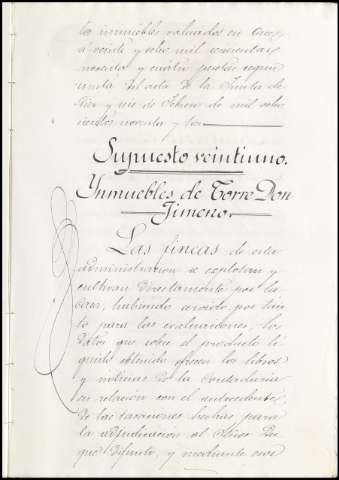 los inmuebles valuados en tres
á veinte y ocho mil cuarenta y
noventa y cuatro pesetas segun
del acta de la Junta de
diez y seis de Febrero de mil ocho
cientos noventa y tres
Supuesto veintiuno.
Ynmuebles de Torre Don
Jimeno.
Las fincas de esta
administracion se explotan y
cultivan directamente por la
Casa, habiendo servido por tan
to para las evaluaciones, los
datos que sobre el producto lí
quido obtenido ofrecen los libros
y noticias de la Contaduria
en relacion con el antecedente
de las tasaciones hechas para
la adjudicacion al Señor Du
que difunto, y mediante ese